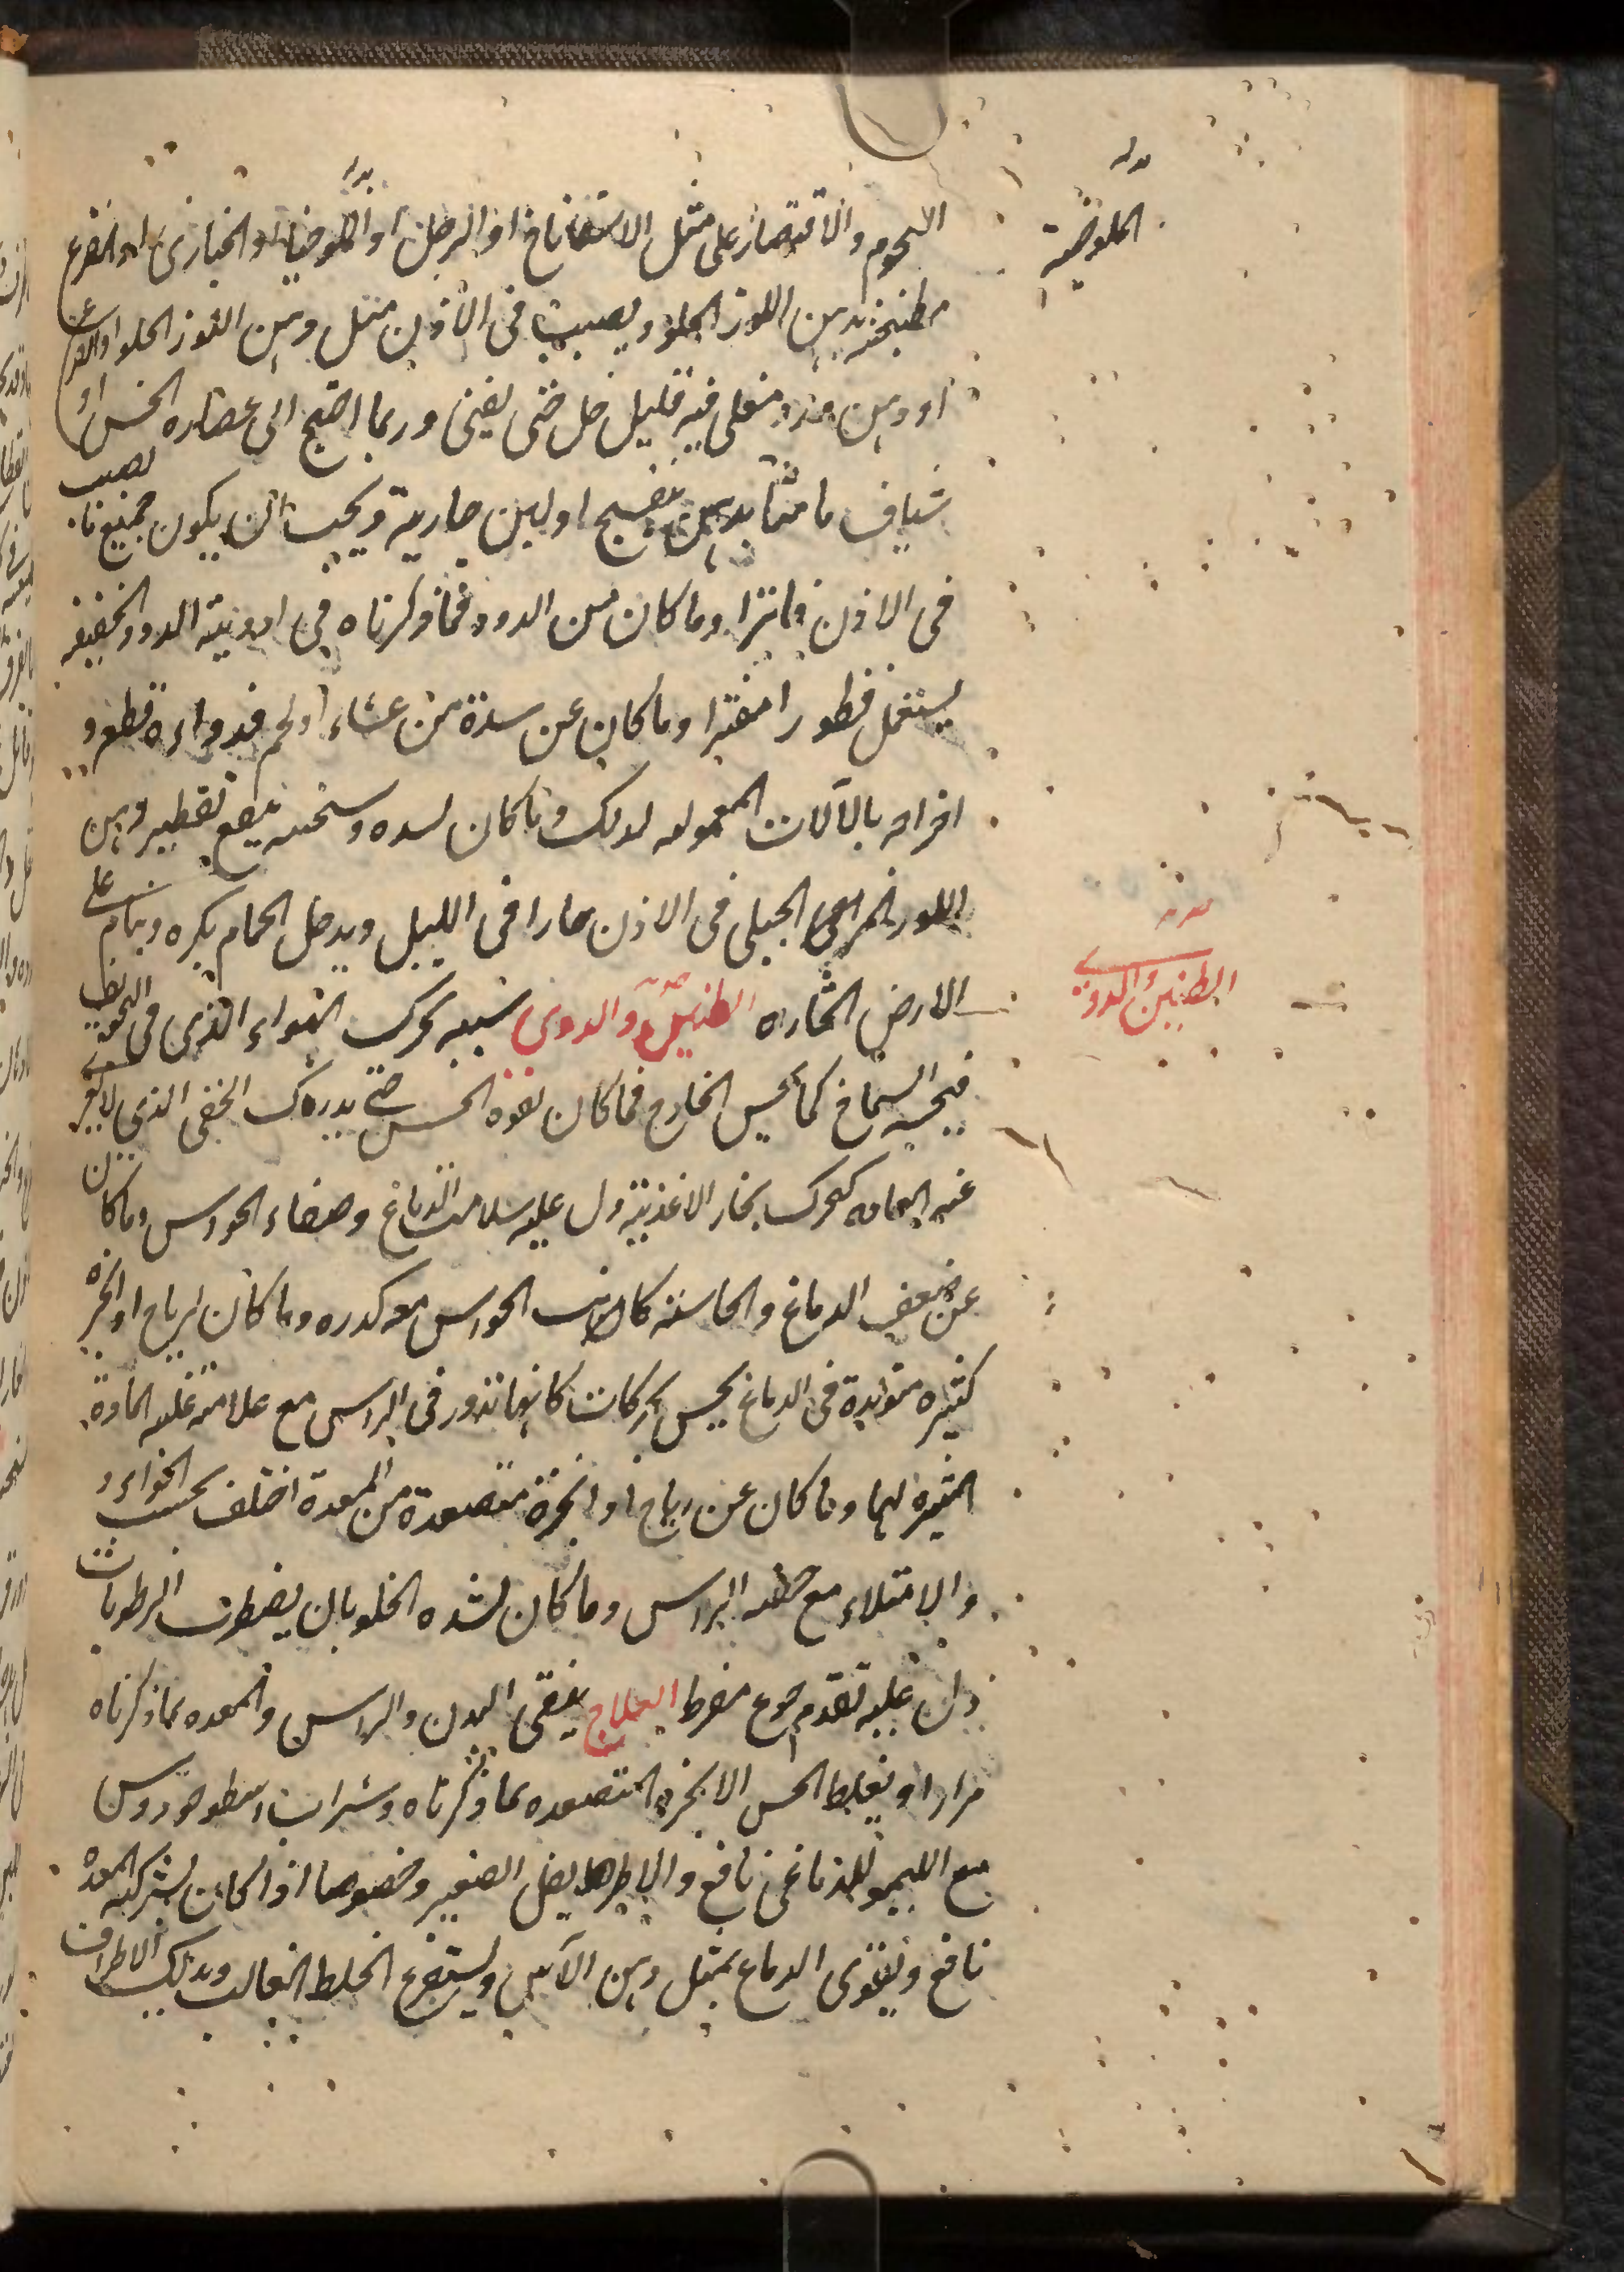 اللحوم والاقتصار على مثل الاسفاناخ او الرجل او الملوخيا او الخبازى او القرع
مطبخة بدهن اللوز الحلو ويصب فى الاذن مثل دهن اللوز الحلو او القرع
او دهن ورد مغلى فيه قليل خل حتى يفنى وربما احتيج الى عصاره الخس او
شياف ماميثا بدهن بنفسج او لبن جارية ويجب ان يكون جميع ما يصب
فى الاذن فاترا وما كان من الدود فما ذكرناه فى ادوية الدود الخفيفه
يستعمل قطورا مفترا وما كان عن سدة من غشاء او لحم فدواءه قطعه و
اخراجه بالآلات المعموله لذلك وما كان لسده وسخيه ينفع تقطير دهن
اللوز المر الجبلى فى الاذن حارا فى الليل ويدخل الحمام بكره وينام على
الارض الحاره الطنين والدوى سببه تحرك الهواء الذى فى التجويف
فيحسه السماخ كما يحس الخارج فما كان لقوه الحس حتى يدرك الخفى الذى لا يعرى
عنه العامه كتحرك بخار الاغذيه دل عليه سلامه الدماغ وصفاء الحواس وما كان
عن ضعف الدماغ والحاسه كانت الحواس معه كدره وما كان لرياح او ابخره
كثيره متولدة فى الدماغ يحس بحركات كانها تدور فى الراس مع علامة غلبه المادة
المثيره لها وما كان عن رياح او ابخرة متصعدة من المعدة اختلف بحسب الخواء و
والامتلاء مع خفه الراس وما كان لشده الخلو بان يضطرب الرطوبات
دل عليه تقدم جوع مفرط العلاج ينقى البدن والراس والمعده بما ذكرناه
مرارا ويغلظ الحس الابخره المتصعده بما ذكرناه وشراب اسطوخودوس
مع الليمو للدماغى نافع والاطريفل الصغير وخصوصا اذا كان بشركه المعده
نافع ويقوى الدماغ بمثل دهن الآس ويستفرغ الخلط الغالب ويدلك الاطراف
الملوخيه
الطنين والدوى